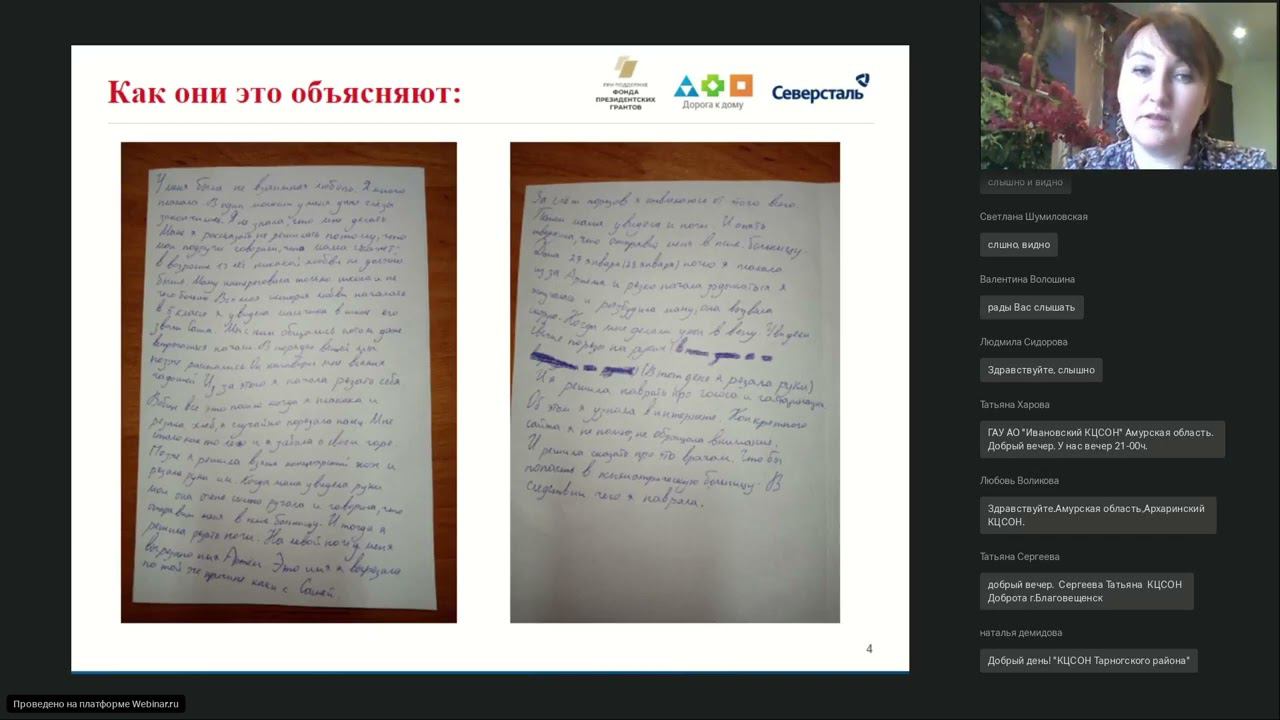 Как они это объясняют:
ПРИ ПОДДЕРЖКЕ
ФОНДА
ПРЕЗИДЕНТСКИХ
ГРАНТОВ
Дорога к дому
Северсталь
У меня была не взаимная любовь. Я много
плакала. В один момент у меня даже слёзы
закончились. Я не знала что мне делать.
Маме я рассказать не решилась потому, что
мои подруги говорили, что мама скажет:
в возрасте 13 лет никакой любви не должно
быть. Маму интересовала только школа и не
чего более. Вся моя история любви началась
в 5 классе я увидела мальчика в школе его
звали Саша. Мы с ним общались потом даже
встречаться начали.
позже расстались он наговорил мне всяких
гадостей. Из за этого я начала резать себя
Вобще все это пошло когда я плакала и
резала хлеб, я случайно порезала палец. Мне
стало как то легче и я забыла о своем горе.
Позже я решила взять канцелярский нож и
резала руки им. Когда мама увидела руки
мои она очень сильно ругала и говорила, что
отправит меня в псих больницу. И тогда я
решила резать ноги. На левой ноге у меня
вырезано имя Артём. Это имя я вырезала
по той же причине как и с Сашей.
За счёт порезов я отвлекаюсь от того всего.
Потом мама увидела и ноги. И опять
что отправит меня в псих. больницу.
29 января (28 января) ночью я плакала
из за Артёма и резко начала задыхаться я
и разбудила маму, она вызвала
скорую. Когда мне делали укол в вену. Увидели
свежие порезы на руках
(В тот день я резала руки)
И я решила наврать про голоса и галлюцинации
Об этом я узнала в интернете. Конкретного
сайта я не помню, не обращала внимание.
И решила сказать про это врачам. Что бы
попасть в психиатрическую больницу. В
следствии чего я наврала.
4
слышно и видно
Светлана Шумиловская
слшно, видно
Валентина Волошина
рады Вас слышать
Людмила Сидорова
Здравствуйте, слышно
Татьяна Харова
ГАУ АО "Ивановский КЦСОН" Амурская область.
Добрый вечер. У нас вечер 21-00ч.
Любовь Воликова
Здравствуйте.Амурская область,Архаринский
КЦСОН.
Татьяна Сергеева
добрый вечер. Сергеева Татьяна КЦСОН
Доброта г.Благовещенск
наталья демидова
Добрый день! "КЦСОН Тарногского района"
Проведено на платформе Webinar.ru